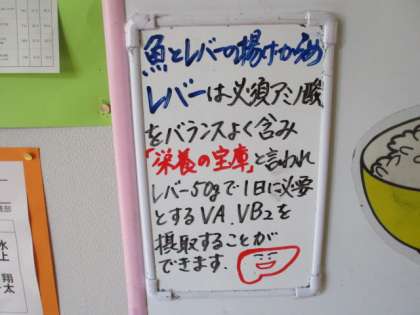 魚とレバーの揚げからめ
レバーは必須アミノ酸
をバランスよく含み
「栄養の宝庫」と言われ
レバー50gで1日に必要
とするVA、VB₂を
摂取することが
できます.
水上
翔太